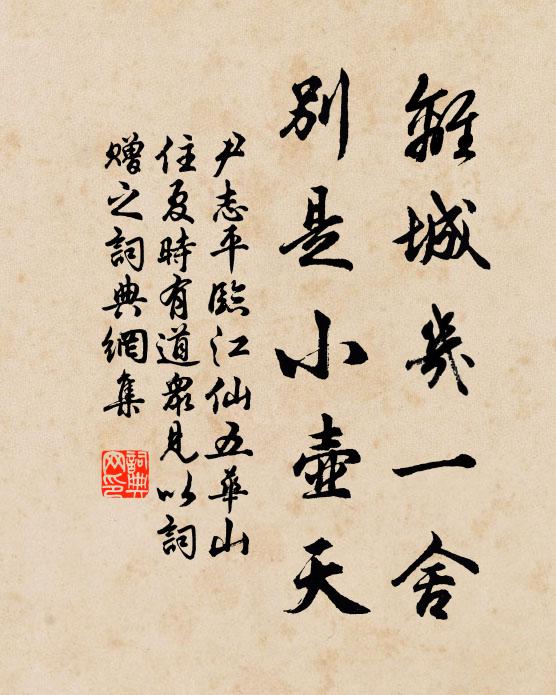 離城幾一舍
別是小壺天
尹志平臨江仙五華山
住夏時有道衆見以詞
贈之詞典網集
詞典
网印